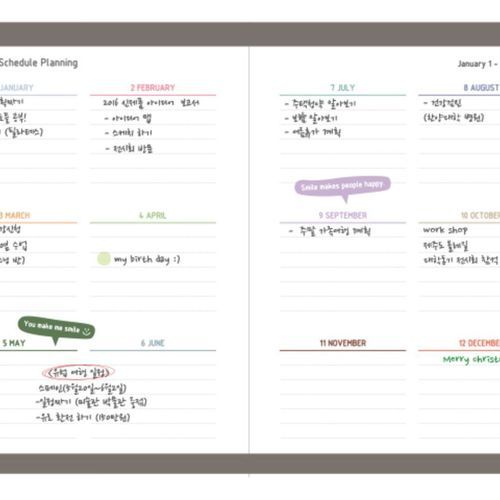 Schedule Planning
January 1 -
JANUARY
2 FEBRUARY
2016 신제품 아이디어 보고서
- 아이디어 맵
- 스케치 하기
- 전시회 방문
7 JULY
- 주택청약 알아보기
- 보험 알아보기
- 여름휴가 계획
8 AUGUST
- 건강검진
(한양대학 병원)
Smile makes people happy.
3 MARCH
수업
4 APRIL
my birth day :)
9 SEPTEMBER
- 주말 가족여행 계획
10 OCTOBER
work shop
제주도 올레길
대학동기 전시회 참석
You make me smile
5 MAY
6 JUNE
(유럽 여행 일정)
스페인(5월20일~6월2일)
-일정짜기 (미술관 박물관 중점)
-유로 환전 하기 (150만원)
11 NOVEMBER
12 DECEMBE
Merry christ